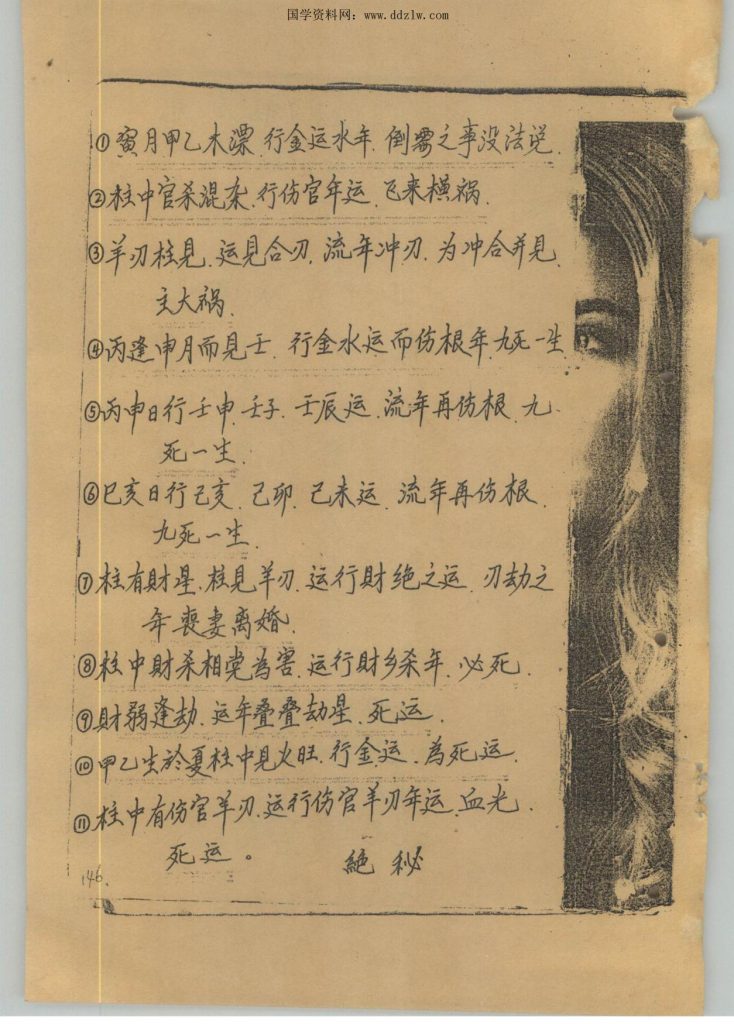 国学资料网：www.ddzlw.com
①寅月甲乙木漂.行金运水年.倒霉之事没法说.
②柱中官杀混杂.行伤官年运.飞来横祸.
③羊刃柱見.运見合刃.流年冲刃.为冲合并見.
主大祸.
④丙逢申月而見壬.行金水运而伤根年.九死一生.
⑤丙申日行壬申.壬子.壬辰运.流年再伤根.九
死一生.
⑥巳亥日行己亥.己卯.己未运.流年再伤根.
九死一生.
⑦柱有財星.柱見羊刃.运行財绝之运.刃劫之
年丧妻离婚.
⑧柱中財杀相党為害.运行財乡杀年.必死.
⑨財弱逢劫.运年叠叠劫星.死运.
⑩甲乙生於夏柱中見火旺.行金运.為死运.
⑪柱中有伤官羊刃.运行伤官羊刃年运.血光.
死运。 絕秘
146.